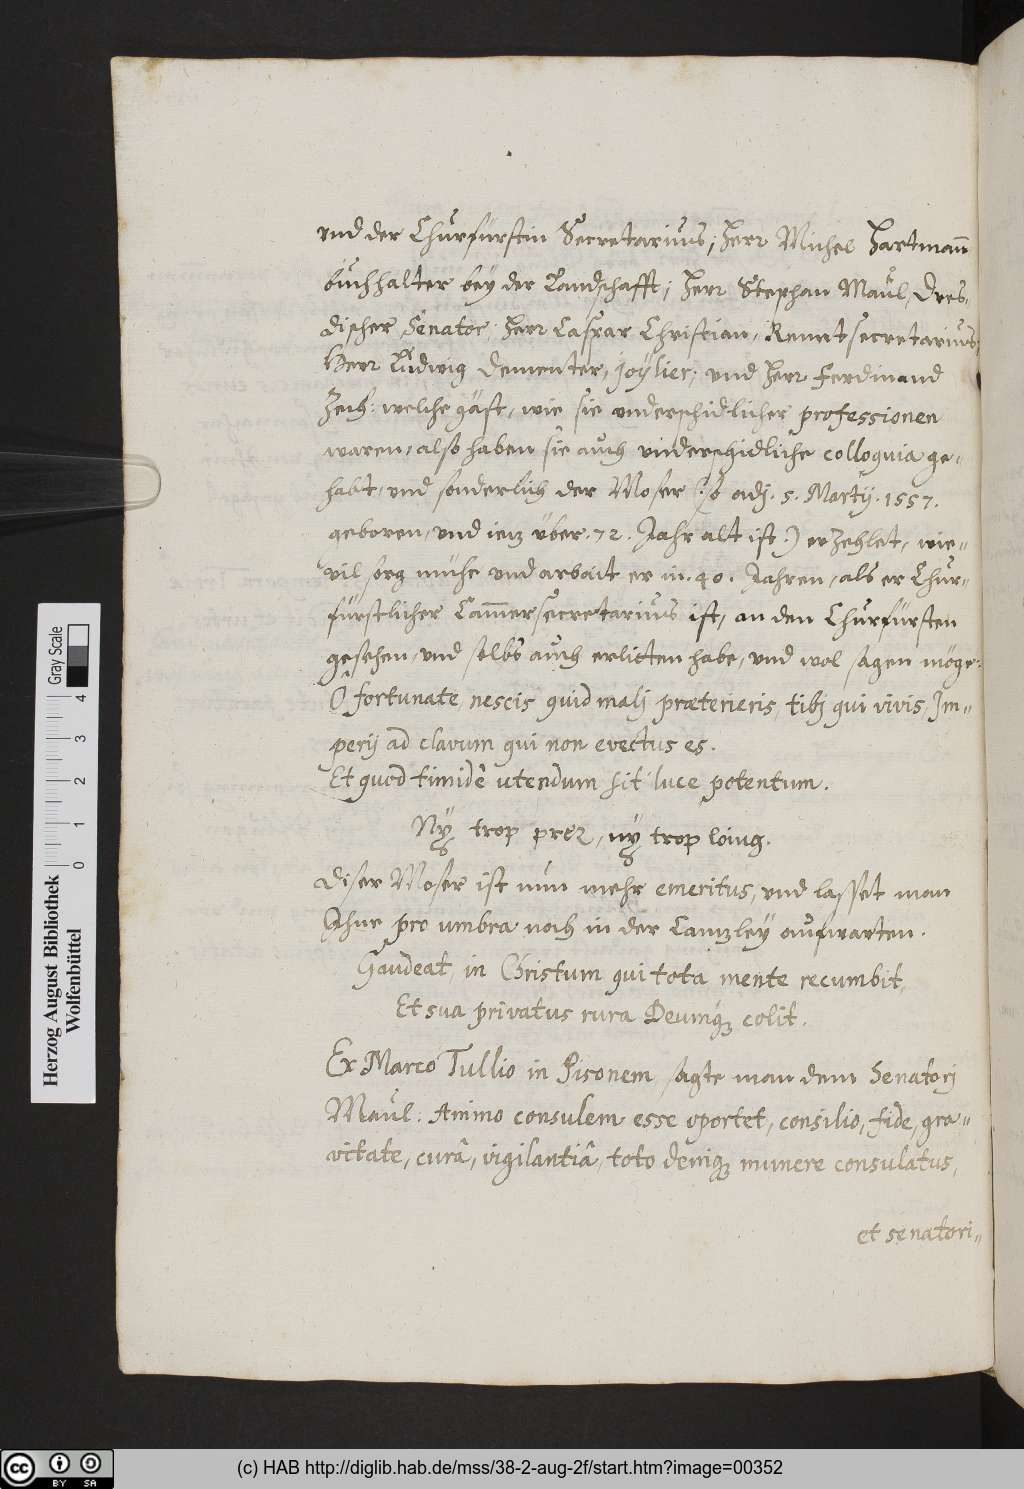 vnd der Churfürstin Secretarius; Herr Michel Hartmann
buchhalter bey der Landschafft; Herr Stephan Maül, Dres-
discher Senator; Herr Caspar Christian, Rennt secretarius;
Herr Ludwig Dementer, Joÿlier; vnd Herr Ferdinand
Zech: welche gäst, wie sie vnderschidlicher professionen
waren, also haben sie auch vnderschidliche colloquia ge-
habt, vnd sonderlich der Moser (: so adj. 5. Martij. 1557.
geboren, vnd iezt über. 72. Jahr alt ist :) erzehlet, wie-
vil sorg mühe vnd arbait er in. 40. Jahren, als er Chur-
fürstlicher Cammersecretarius ist, an den Churfürsten
gesehen, vnd selbs auch erlitten habe, vnd wol sagen möge:
Ô fortunate, nescis quid malj præterieris, tibj qui vivis, Im-
perij ad clavum qui non evectus es.
Et quod timidè utendum sit luce potentum.
Nÿ trop prez, nÿ trop loing.
Diser Moser ist nun mehr emeritus, vnd lasset man
Jhne pro umbra noch in der Canzley aufwarten.
Gaudeat, in Christum qui tota mente recumbit,
Et sua privatus rura Deumq3 colit.
Ex Marco Tullio in Pisonem sagte man dem Senatorj
Maül: Animo consulem esse oportet, consilio, fide, gra-
vitate, curâ, vigilantiâ, toto deniq3 munere consulatus,
et senatori-
Herzog August Bibliothek
Wolfenbüttel
0 1 2 3 4
Gray Scale
cc BY SA
(c) HAB http://diglib.hab.de/mss/38-2-aug-2f/start.htm?image=00352